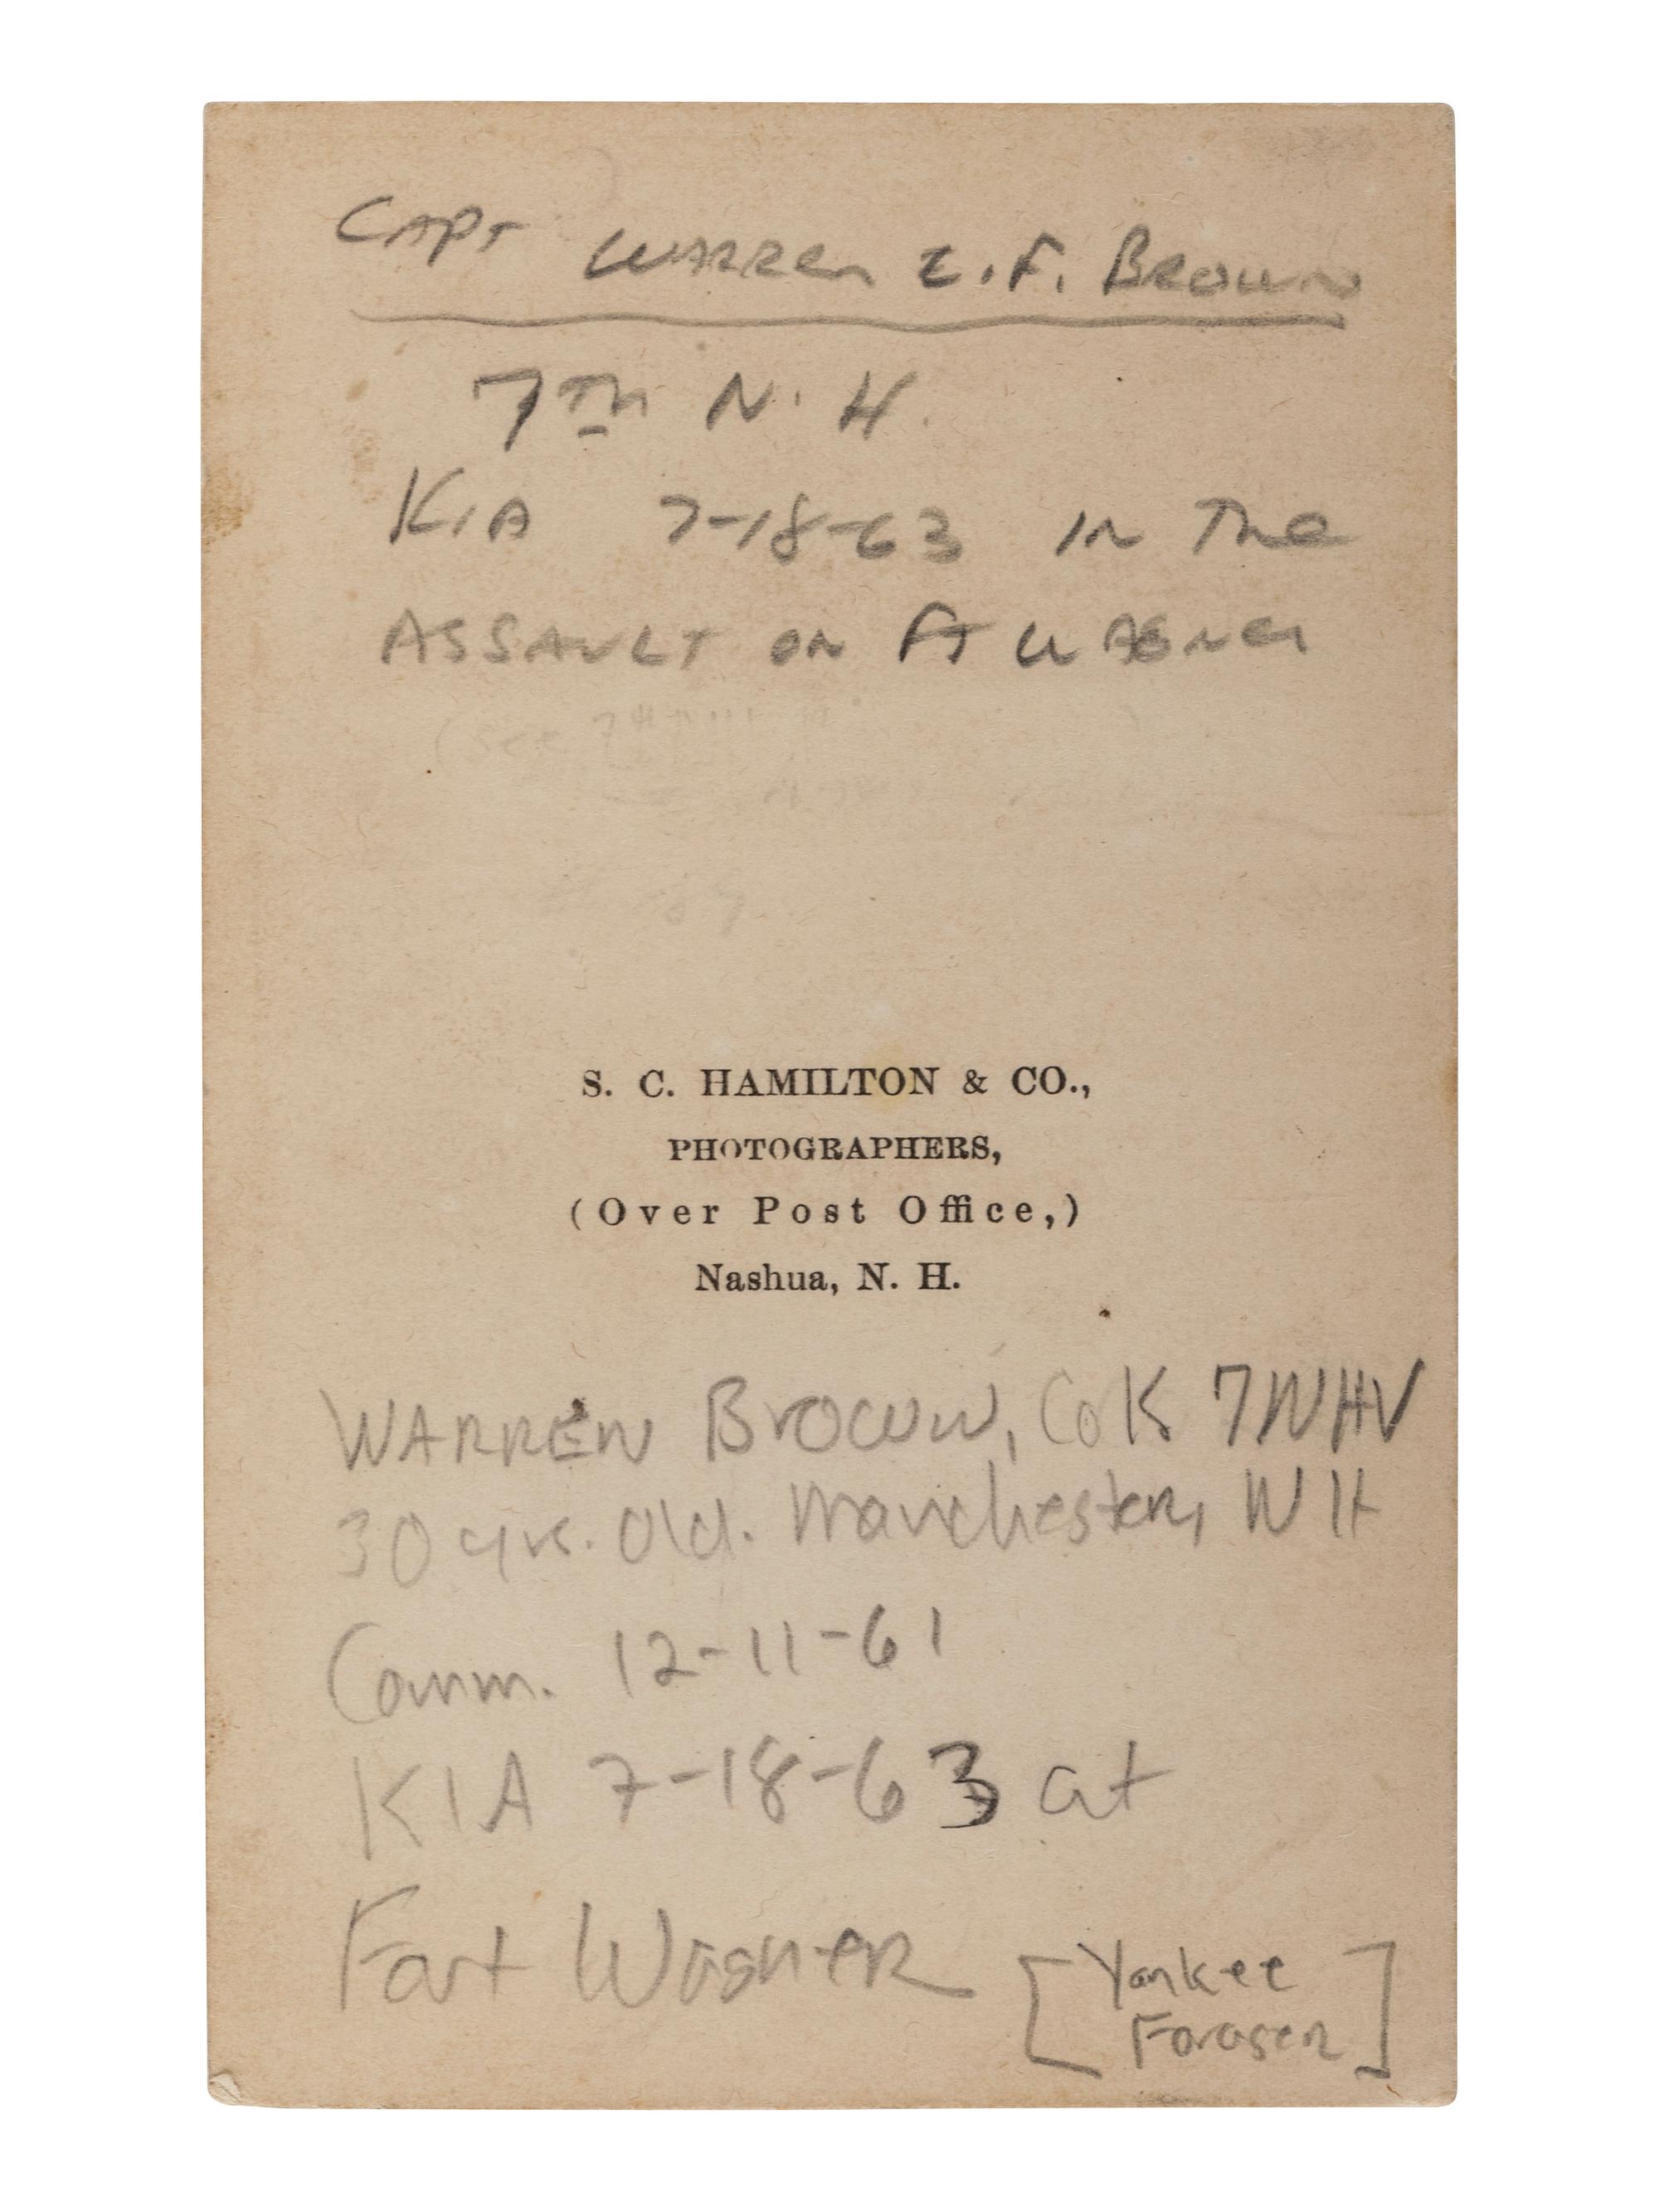 CAPT WARREN E. F. BROWN
7TH N. H.
KIA 7-18-63 IN THE
ASSAULT ON FT WAGNER
(see 7th
S. C. HAMILTON & CO.,
PHOTOGRAPHERS,
(Over Post Office,)
Nashua, N. H.
WARREN BROWN, Co K 7NHV
30 yrs. old. Manchester, NH
Comm. 12-11-61
KIA 7-18-63 at
Fort WagnER
[Yankee
ForagER]